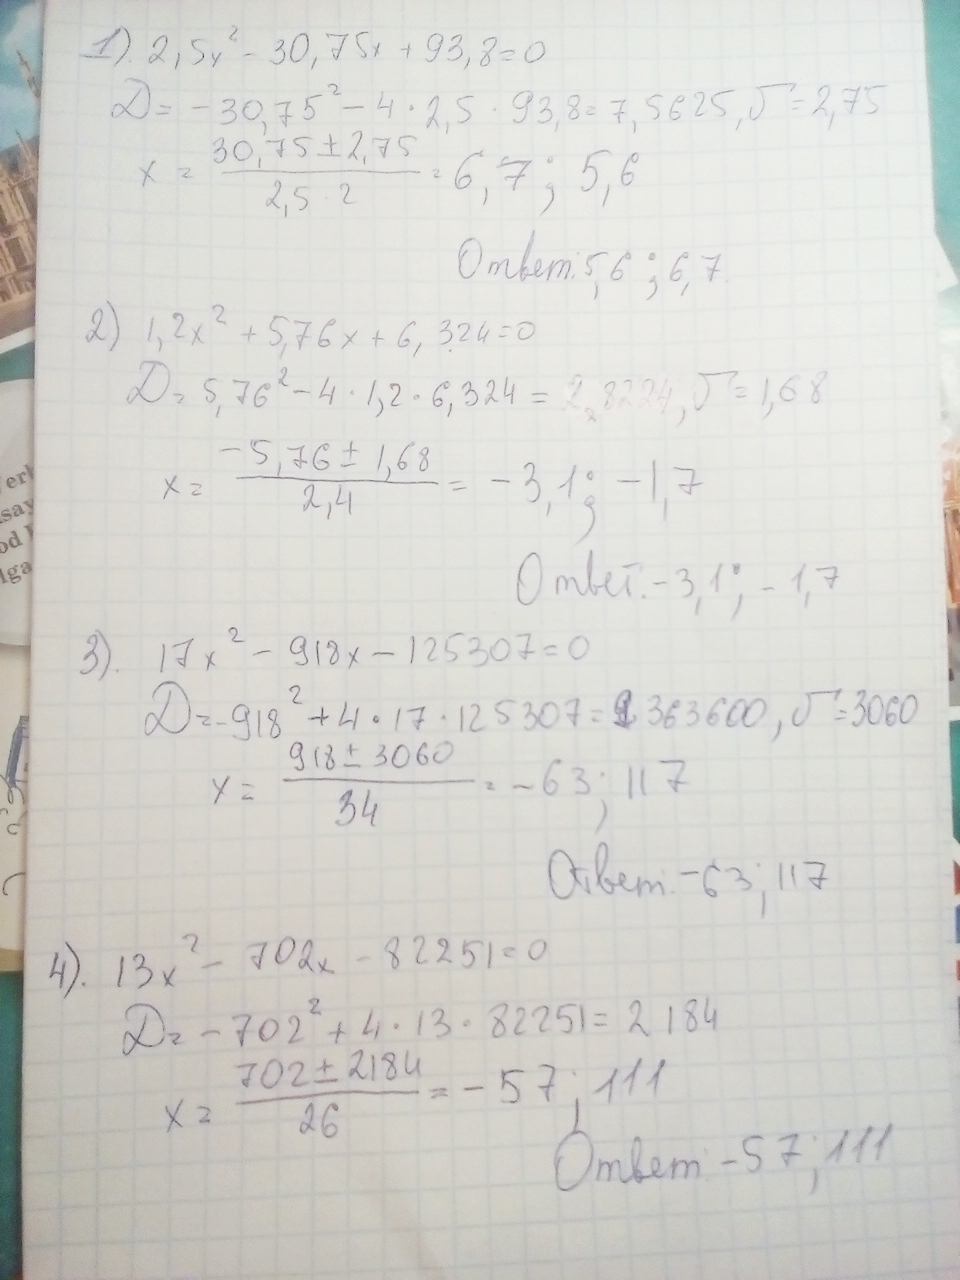 1). 2,5x² - 30,75x + 93,8 = 0
D = -30,75² - 4 · 2,5 · 93,8 = 7,5625, √ = 2,75
x = (30,75 ± 2,75) / (2,5 · 2) = 6,7 ; 5,6
Ответ: 5,6 ; 6,7
2) 1,2x² + 5,76x + 6,324 = 0
D = 5,76² - 4 · 1,2 · 6,324 = 2,8224, √ = 1,68
x = (-5,76 ± 1,68) / 2,4 = -3,1 ; -1,7
Ответ: -3,1 ; -1,7
3). 17x² - 918x - 125307 = 0
D = -918² + 4 · 17 · 125307 = 9363600, √ = 3060
x = (918 ± 3060) / 34 = -63 ; 117
Ответ: -63 ; 117
4). 13x² - 702x - 82251 = 0
D = -702² + 4 · 13 · 82251 = 2184
x = (702 ± 2184) / 26 = -57 ; 111
Ответ: -57 ; 111